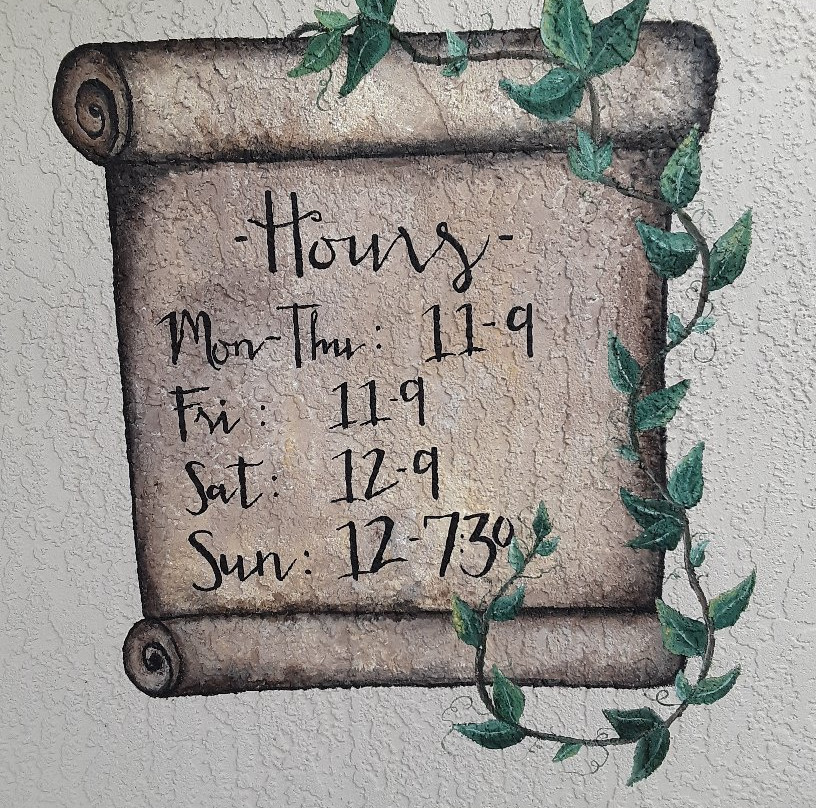 -Hours-
Mon-Thu: 11-9
Fri: 11-9
Sat: 12-9
Sun: 12-7:30